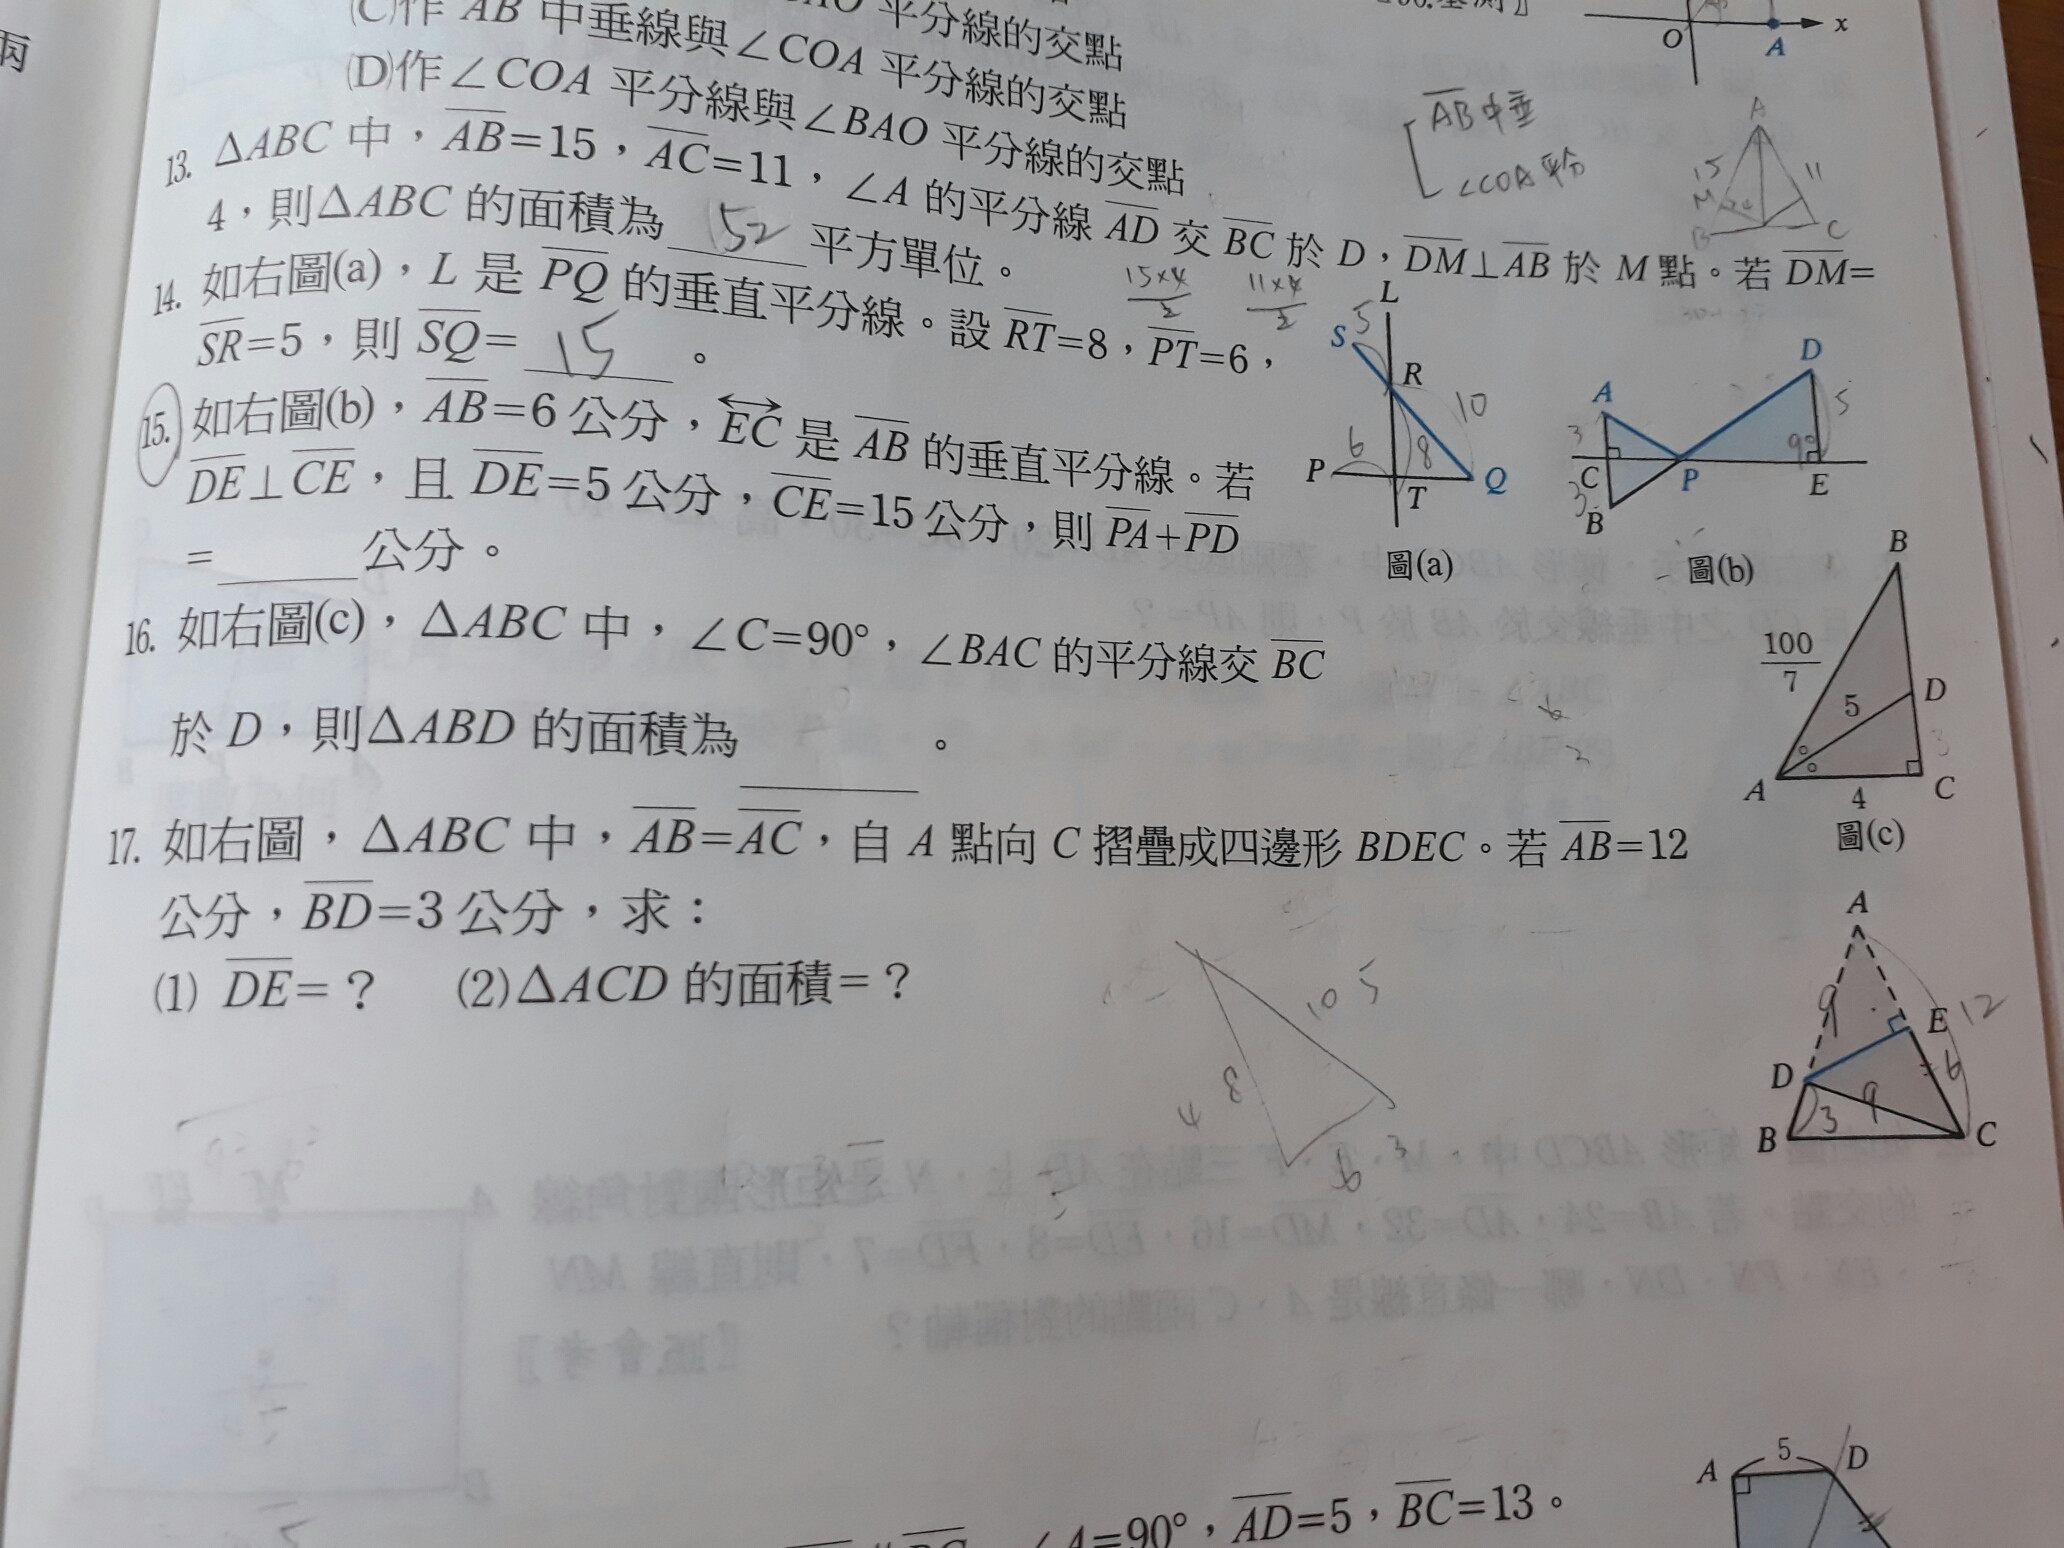 丙
平分線的交點
『 基測』
(C)作 AB 中垂線與∠COA 平分線的交點
(D)作∠COA 平分線與∠BAO 平分線的交點
O
A
x
AB中垂
∠COA平分
13. ΔABC 中，AB=15，AC=11，∠A 的平分線 AD 交 BC 於 D，DM⊥AB 於 M 點。若 DM=
4，則ΔABC 的面積為 52 平方單位。
15×4
2
11×4
2
A
15
11
M
B
C
14. 如右圖(a)，L 是 PQ 的垂直平分線。設 RT=8，PT=6，
SR=5，則 SQ= 15 。
L
S
5
R
10
6
8
P
T
Q
圖(a)
15. 如右圖(b)，AB=6 公分，EC 是 AB 的垂直平分線。若
DE⊥CE，且 DE=5 公分，CE=15 公分，則 PA+PD
= 公分。
A
D
3
5
C
P
E
3
B
圖(b)
16. 如右圖(c)，ΔABC 中，∠C=90°，∠BAC 的平分線交 BC
於 D，則ΔABD 的面積為 。
B
100
7
5
D
3
A
4
C
圖(c)
17. 如右圖，ΔABC 中，AB=AC，自 A 點向 C 摺疊成四邊形 BDEC。若 AB=12
公分，BD=3 公分，求：
(1) DE=？ (2)ΔACD 的面積=？
10
5
8
4
3
6
A
9
E
12
D
6
3
9
B
C
∠A=90°，AD=5，BC=13。
A
5
D